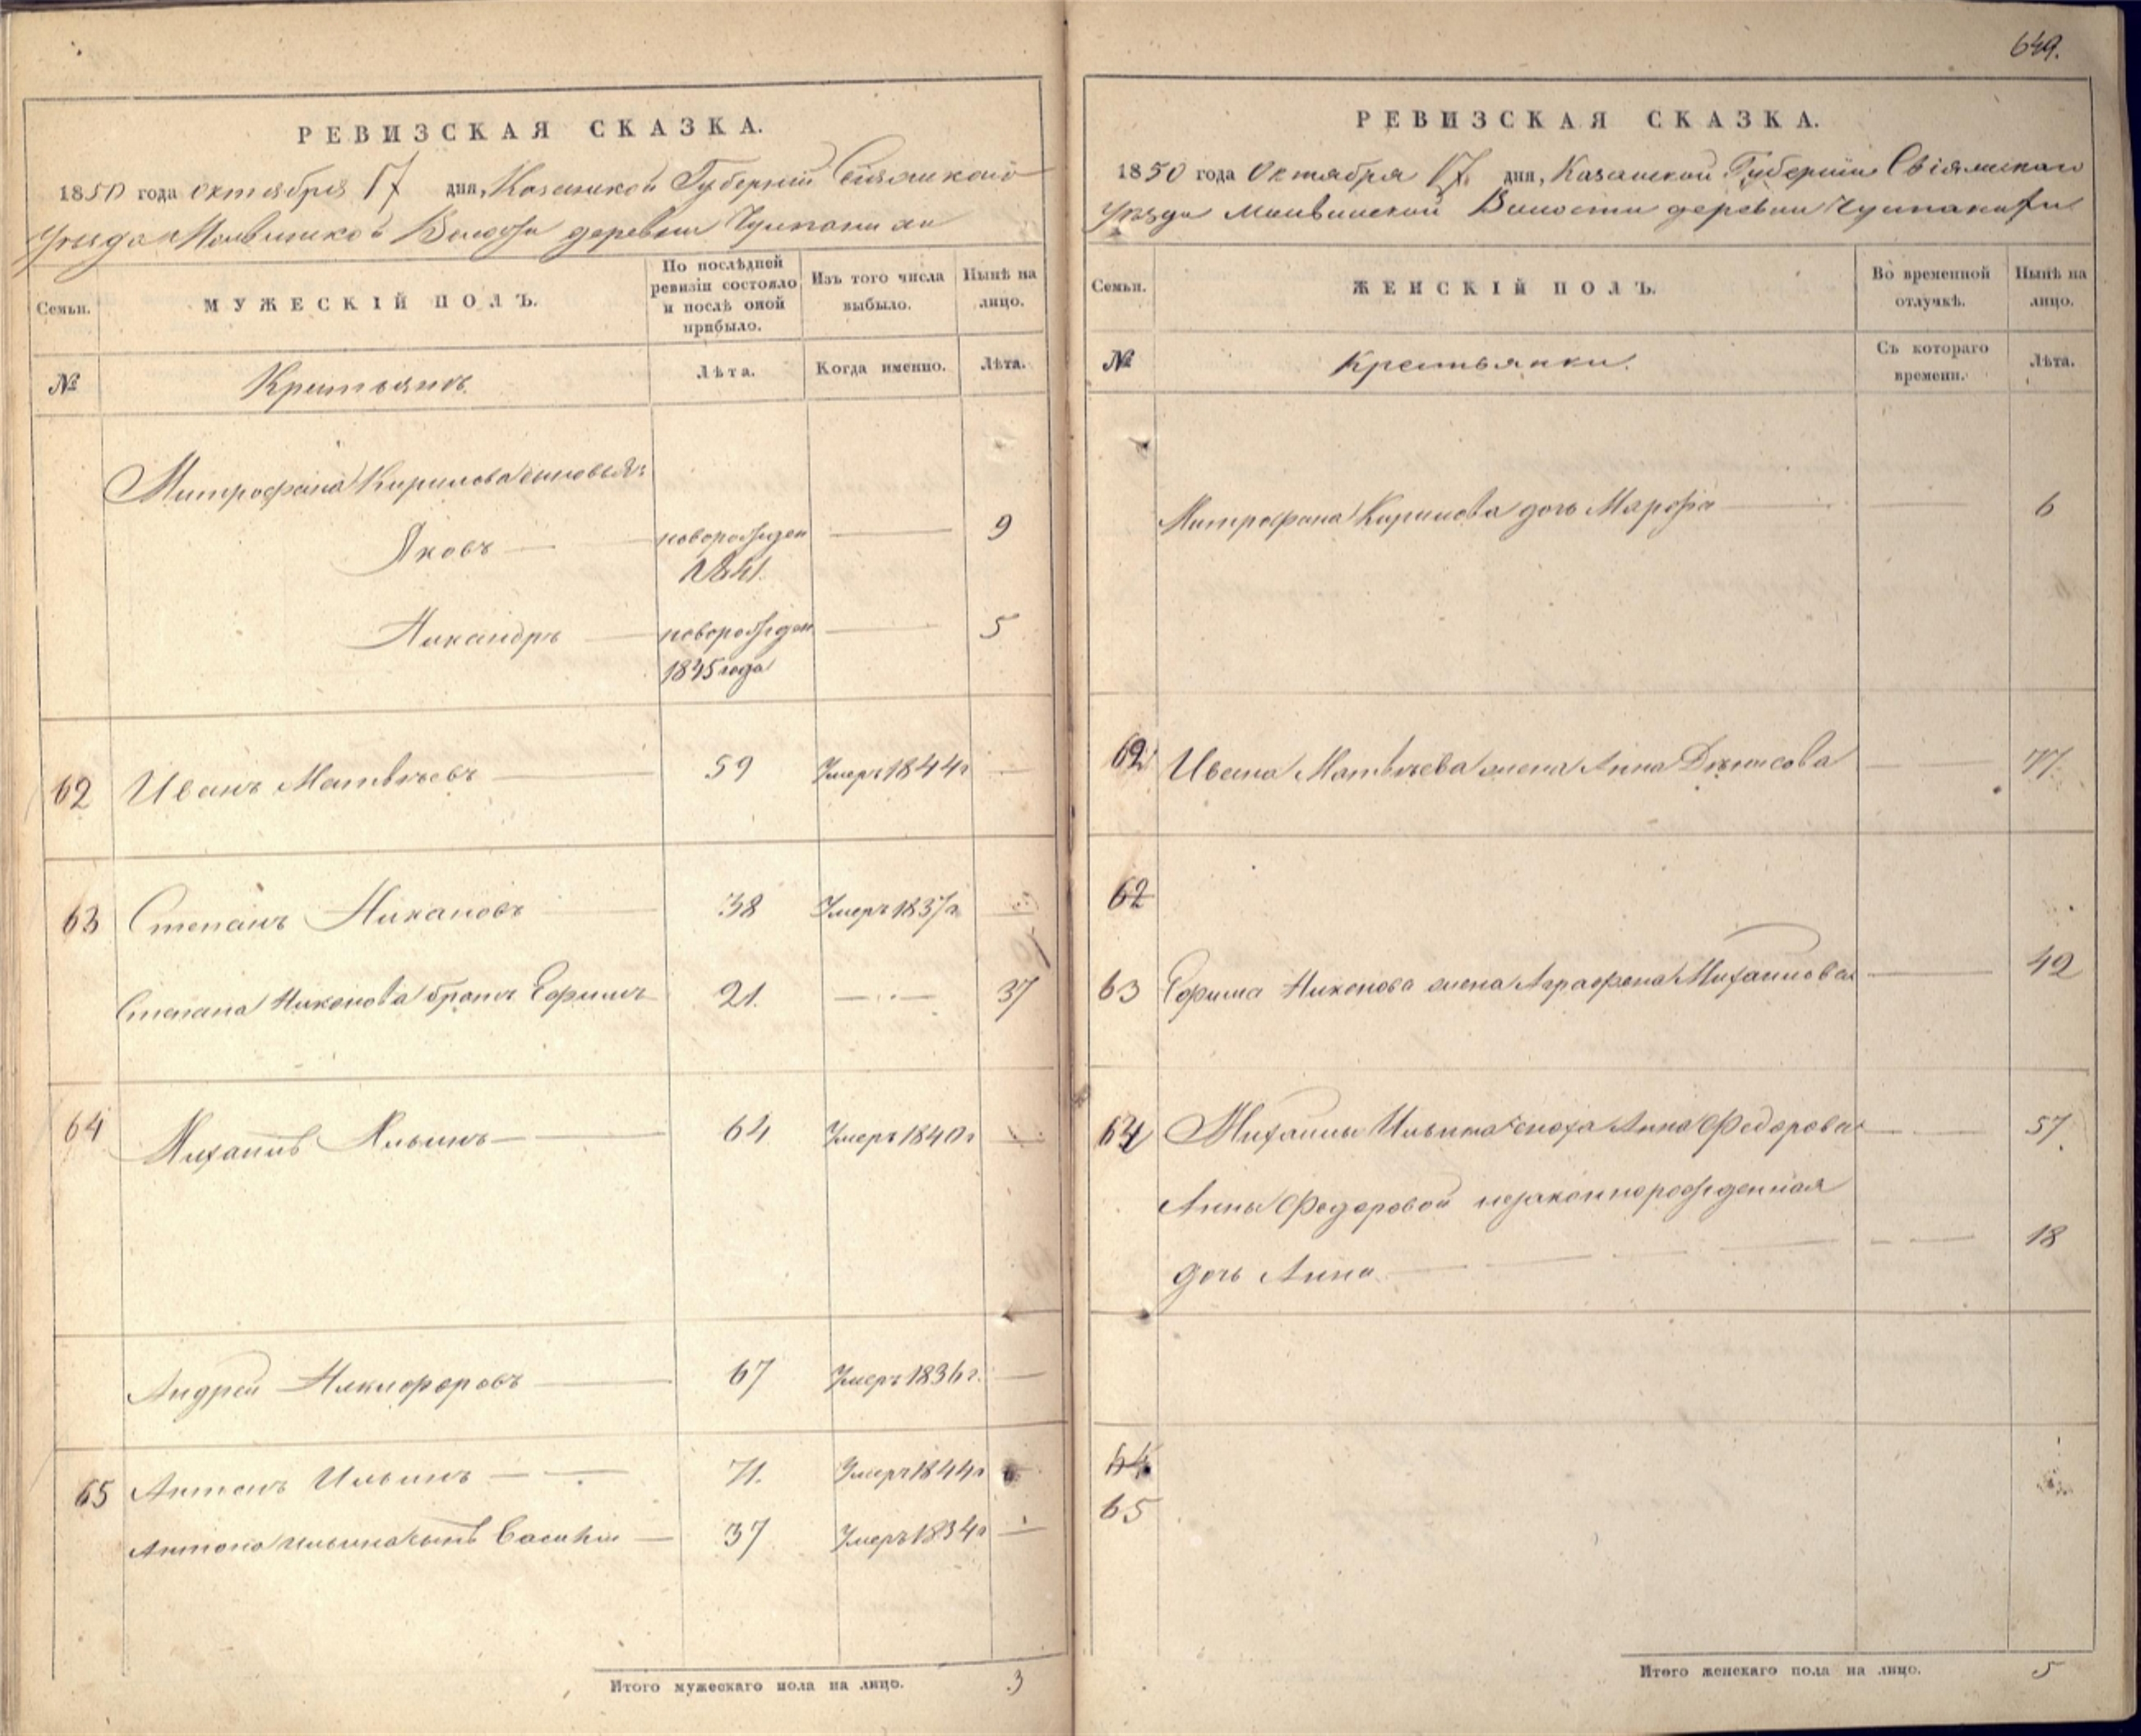 649.
РЕВИЗСКАЯ СКАЗКА.
1850 года октября 17 дня, Казанской Губернии Свіяжскаго
Уѣзда Волости деревни
Семьи. МУЖЕСКІЙ ПОЛЪ. По послѣдней ревизіи состояло и послѣ оной прибыло. Изъ того числа выбыло. Нынѣ на лицо.
№ Крестьянъ. Лѣта. Когда именно. Лѣта.
Митрофана Кирилова сыновья
Яковъ новорожден 9
1841.
Никандръ новорожден 5
1845 года
62 Иванъ Матвѣевъ 59 Умеръ 1844 г
63 Степанъ Никоновъ 38 Умеръ 1837 г
Степана Никонова братъ Ефимъ 21. 37
64 Михаилъ Ильинъ 64 Умеръ 1840 г
Андрей Никифоровъ 67 Умеръ 1836 г.
65 Антонъ Ильинъ 71. Умеръ 1844 г
Антона Ильина сынъ Василій 37 Умеръ 1834 г
Итого мужескаго пола на лицо. 3
РЕВИЗСКАЯ СКАЗКА.
1850 года Октября 17 дня, Казанской Губерніи Свіяжскаго
Уѣзда Волости деревни
Семьи. ЖЕНСКІЙ ПОЛЪ. Во временной отлучкѣ. Нынѣ на лицо.
№ Крестьянки. Съ котораго времени. Лѣта.
Митрофана Кирилова дочь Марфа 6
62 Ивана Матвѣева жена Анна Денисова 77.
62
63 Ефима Никонова жена Аграфена Михаилова 42
64 Михаилы Ильина сноха Анна Федорова 57.
Анны Федоровой незаконнорожденная
дочь Анна 18
64
65
Итого женскаго пола на лицо. 5